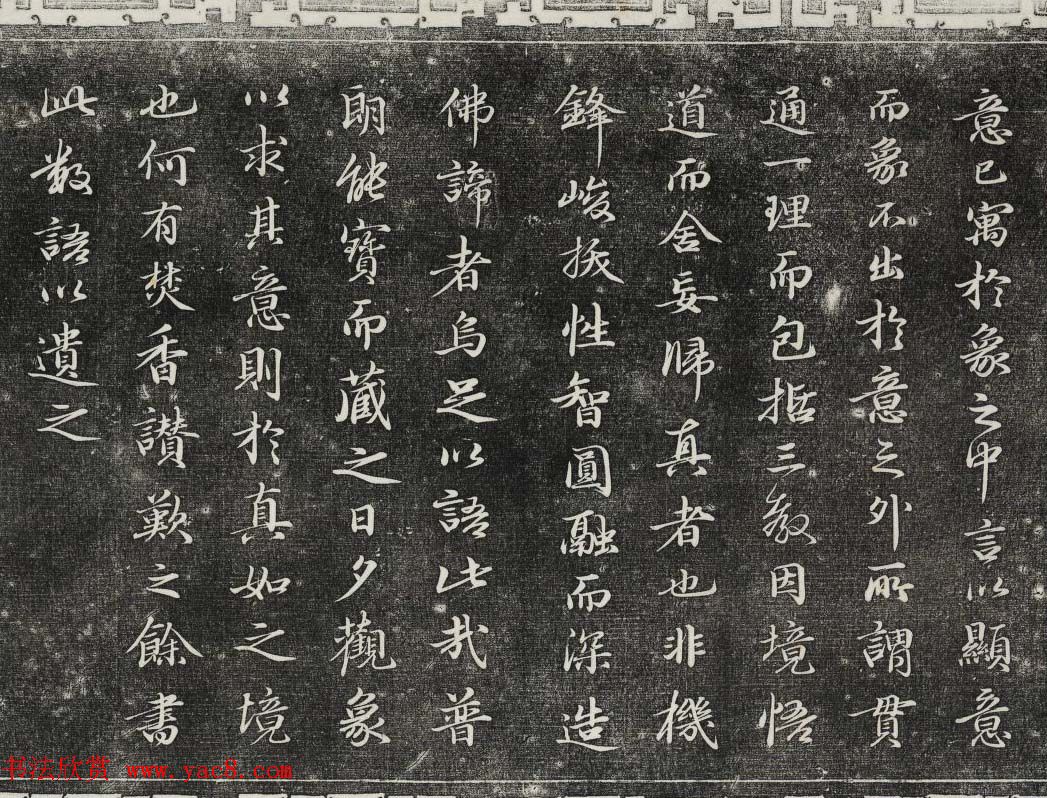 意已寓於象之中言以顯意
而象不出於意之外所謂貫
通一理而包括三教因境悟
道而舍妄歸真者也非機
鋒峻捩性智圓融而深造
佛諦者烏足以語此哉普
朗能寶而藏之日夕觀象
以求其意則於真如之境
也何有焚香讚歎之餘書
此數語以遺之
书法欣赏 www.yac8.com